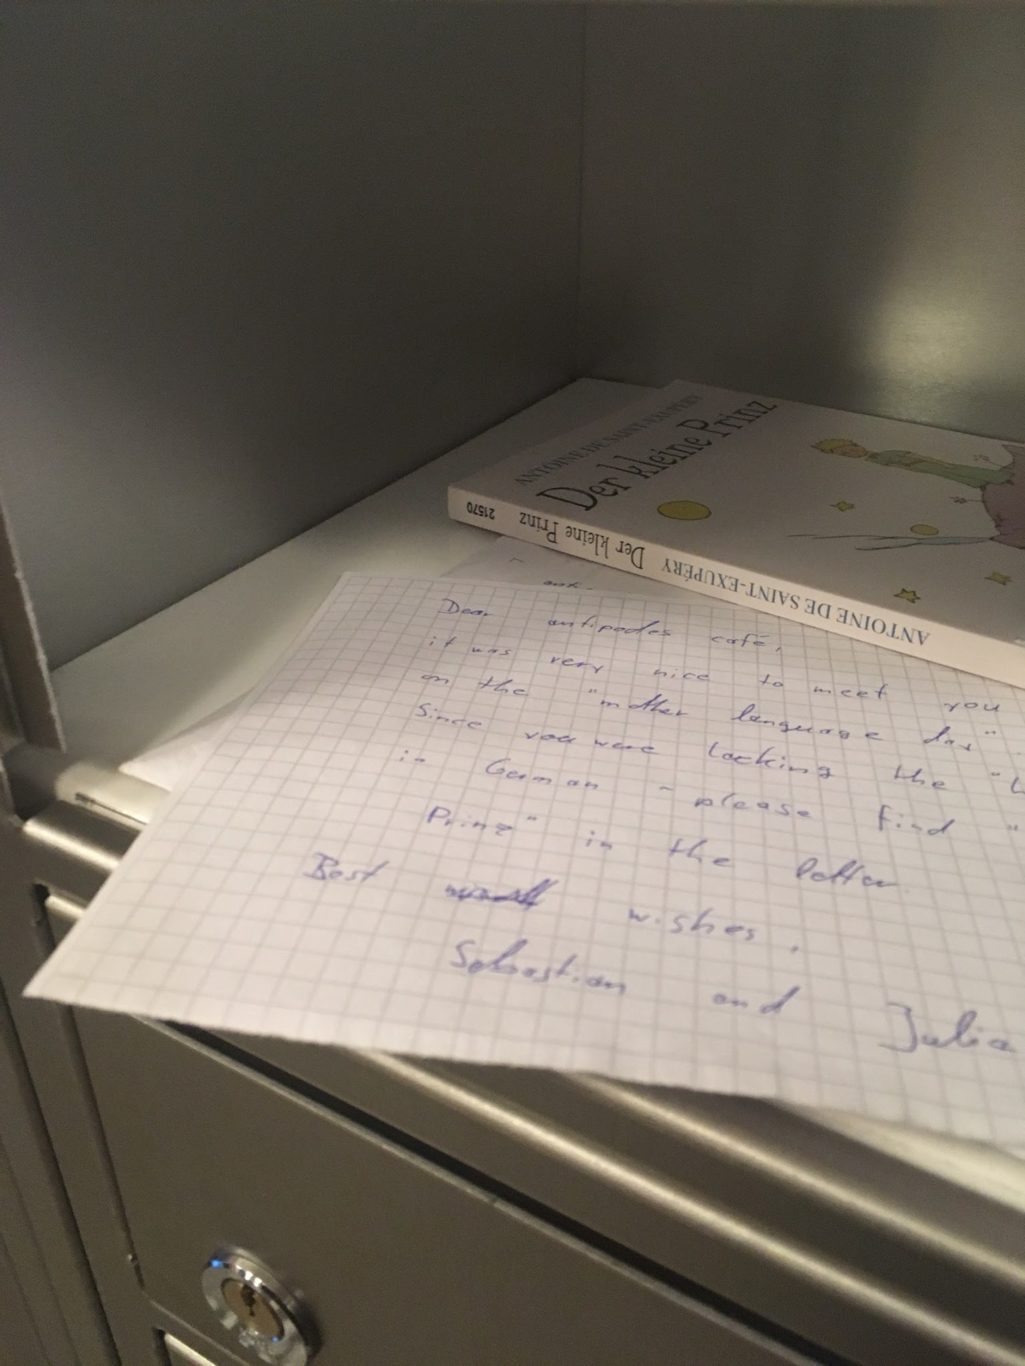 ANTOINE DE SAINT-EXUPÉRY
Der kleine Prinz
21570 Der kleine Prinz ANTOINE DE SAINT-EXUPÉRY
Dear antipodes café,
it was very nice to meet you
on the "mother language day".
Since you were lacking the "
in German - please find "
Prinz" in the letter
Best wishes,
Sebastian and Julia